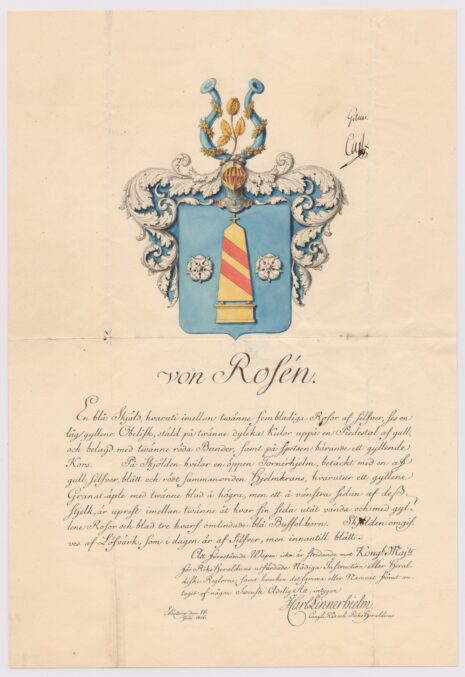 Gam.
Carl
von Rosén.
En blå Skjöld, hvaruti imellan twänne fembladiga Rosor af silfver, ses en
låg gyllene Obelisk, stäld på twänne dylika Kulor uppå en Piedestal af gull,
och belagd med twänne röda Bander, samt på Spetsen bärande ett gyllende
Kors. På Skjölden hvilar en öppen Tornerhjelm, betäckt med en af
gull, silfver, blått och rödt sammanvriden Hjelmkrans, hvarutur ett gyllene
Granat-äple med twänne blad å högra, men ett å vänstra sidan af deß
stjelk, är upröst imellan twänne åt hvar sin sida utåt vända och med gyl-
lene Rosor och blad tre hvarf omlindade blå Buffelhorn. Skjölden omgif-
ves af Löfvärk, som i dagen är af Silfver, men innantill blått.
Att förestående Wapen icke är stridande mot Kongl. Maj:ts
för Riks Heraldicus utfärdade Nådiga Instruction eller Heral-
diske Reglorne; samt hvarken det samma eller Namnet förut an-
tagit af någon Svensk Adelig Ätt, intygar
Jonas Carl Linnerhielm.
Cantzli Råd och Riks Heraldicus